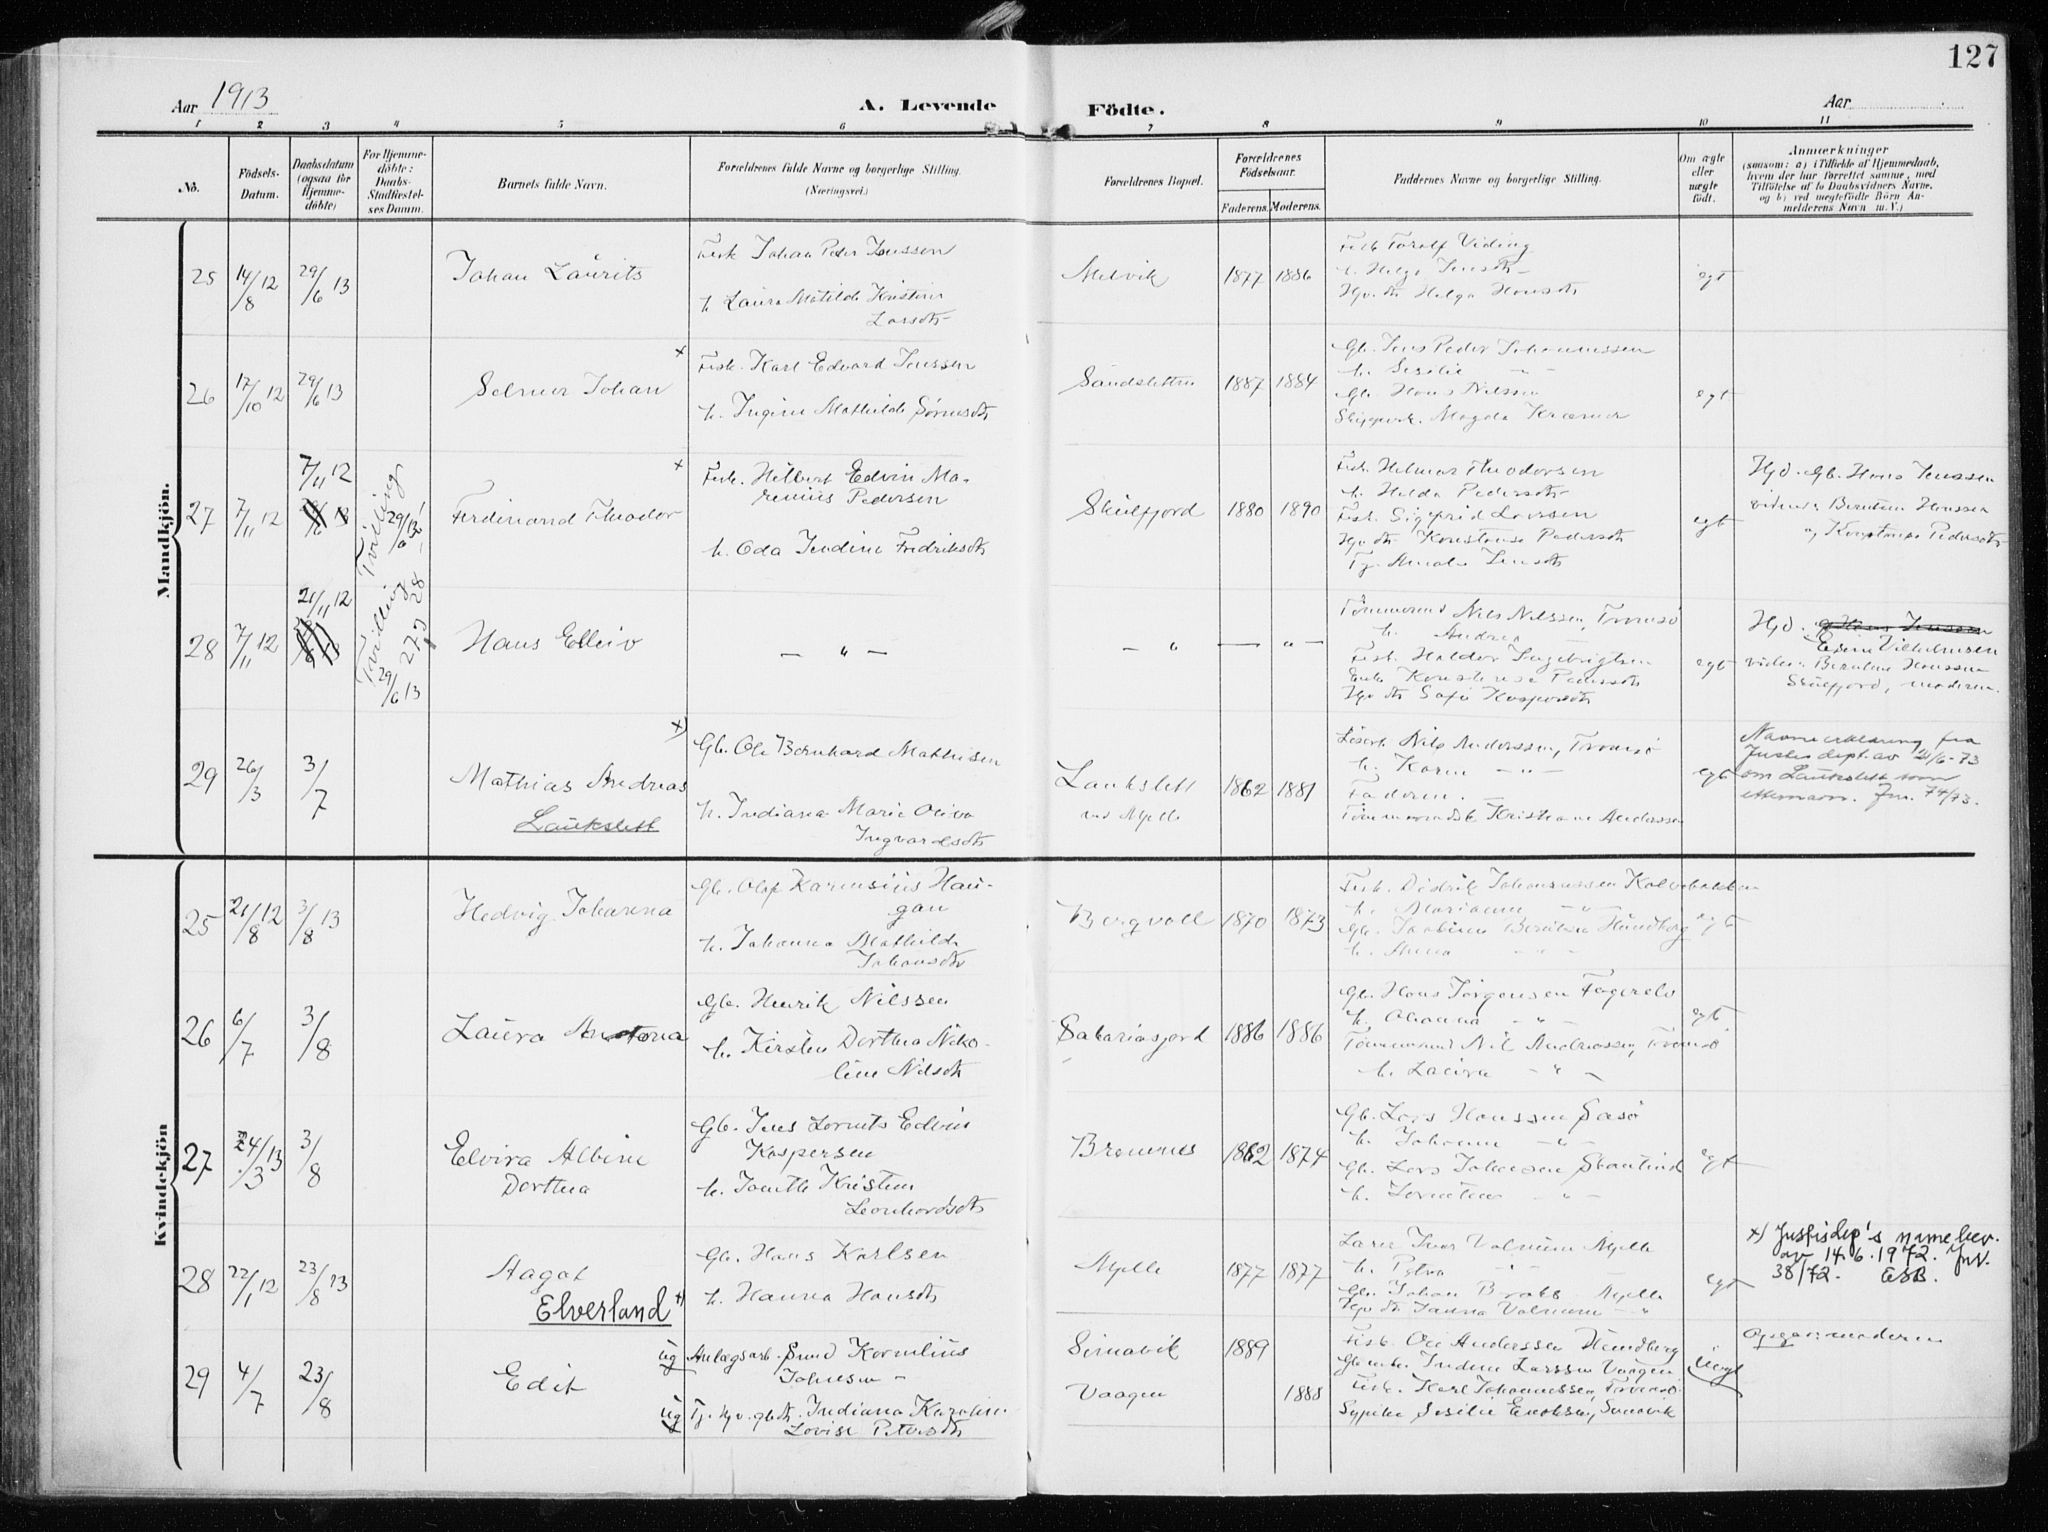 127
Aar 1913
A. Levende Födte.
Aar
1 2 3 4 5 6 7 8 9 10 11
No.
Födsels-Datum.
Daabsdatum (ogsaa for Hjemme-döbte)
For Hjemme-döbte: Daabs-Stadfæstel-ses Datum.
Barnets fulde Navn.
Forældrenes fulde Navne og borgerlige Stilling. (Næringsvei.)
Forældrenes Bopæl.
Forældrenes Födselsaar.
Faderens. Moderens.
Faddernes Navne og borgerlige Stilling.
Om ægte eller uægte födt.
Anmærkninger
(saasom: a) i Tilfælde af Hjemmedaab, hvem der har forrettet samme, med Tilföielse af to Daabsvidners Navne, og b) ved uægtefödte Börn An-melderens Navn m. V.)
Mandkjön.
25 14/8 12 29/6 13 Johan Laurits
Fisk Johan Peder Jenssen
h. Laura Matilde Kristine
Larsdtr
Melvik 1877 1886
h. Helga Jensdtr
Hjv. dtr Helga Hansdtr
egt
26 17/10 12 29/6 13 Selmer Johan x
Fisk. Karl Edvard Jenssen
h. Ingine Mathilde Sørensdtr
Sandsletten 1887 1884
Gb. Jens Peder Johannessen
h. Sesilie
Gb. Hans Nilsen
Magda Kræmer
egt
27 7/11 12 7/11 12 Tvilling 29/6 13 Ferdinand Theodor x
Fisk. Hilbert Edvin Ma-
renius Pedersen
h. Oda Indine Fredriksdtr
Skulfjord 1880 1890
Fisk. Helmer Theodorsen
h. Helda Pedersdtr
Fisk. Sigfrid Larssen
Hjv dtr Konstanse Pedersdtr
Tj. Amalie Jensdtr
egt
Hjd. Gb. Hans Jenssen
vidner: Berntine Hanssen
og Konstanse Pedersdtr
28 7/11 12 21/11 12 Tvilling 27 og 28 29/6 13 Hans Elleiv
— " —
— " — — " —
Tømmermd Nils Nilssen, Tromsø
h. Andrea
Fisk. Haldor Ingebrigtsen
Enke Konstanse Pedersdtr
Hjv dtr Sofie Kaspersdtr
egt
Hjd. Hans Jenssen
Vilhelmsen
vidner: Berntine Hanssen
Skulfjord, moderen.
29 26/3 3/7 Mathias Andreas x)
Laukslett
Gb. Ole Bernhard Mathisen
h. Indiana Marie Oliva
Ingvardsdtr
Laukslett
ved Mjelle
1862 1881
Nils Anderssen, Tromsø
h. Karen — " —
Faderen.
Kristiane Anderssen
egt
Navneerklæring fra
Justisdept. av 21/6-73
om Laukslett som
etternavn. Jnr. 74/73.
Kvindekjön
25 21/8 12 3/8 13 Hedvig Johanna
Gb. Olaf Karensius Hau-
gan
h. Johanna Mathilde
Johansdtr
Bergvoll 1870 1873
Fisk. Didrik Johannessen Kalvebakken
h. Marianne — " —
Gb. Berntsen Hundberg
h. Anna
egt
26 6/7 3/8 Laura Antona
Gb. Henrik Nilssen
h. Kirsten Dorthea Niko-
line Nilsdtr
Sakariasjord 1886 1886
Gb. Hans Jørgensen Fagerels
h. Johanna — " —
Tømmermand Nils Andreassen, Tromsø
h. Laura — " —
egt
27 24/3 13 3/8 Elvira Albine
Dorthea
Gb. Jens Lornts Edvin
Kaspersen
h. Janitte Kristine
Leonhardsdtr
Bremnes 1862 1874
Gb. Lars Hanssen Sasø
h. Johanne — " —
Gb. Lars Johansen Skantind
h. Lorentine — " —
egt
28 22/1 12 23/8 13 Aagot
Elverland x)
Gb. Hans Karlsen
h. Hanna Hansdtr
Mjelle 1877 1877
Lærer Ivar Valnum Mjelle
h. Petra
Gb. Johan Mjelle
Hjv dtr Janna Valnum — " —
egt
x) Justisdep's namebev.
av 14.6.1972. Jnr.
38/72. ESB.
29 4/7 23/8 Edit
ug Anlægsarb. Kornelius
Johnsen
ug Tj. Hjv. gbdtr. Indiana Karoline
Lovise Petersdtr
Simavik 1889
Vaagen 1888
Fisk. Ole Anderssen Hundberg
Indine Larssen Vaagen
Fisk. Karl Johannessen, Tromsø
Sypike Sesilie Enoksen, Simavik
uegt
Opgav: moderen